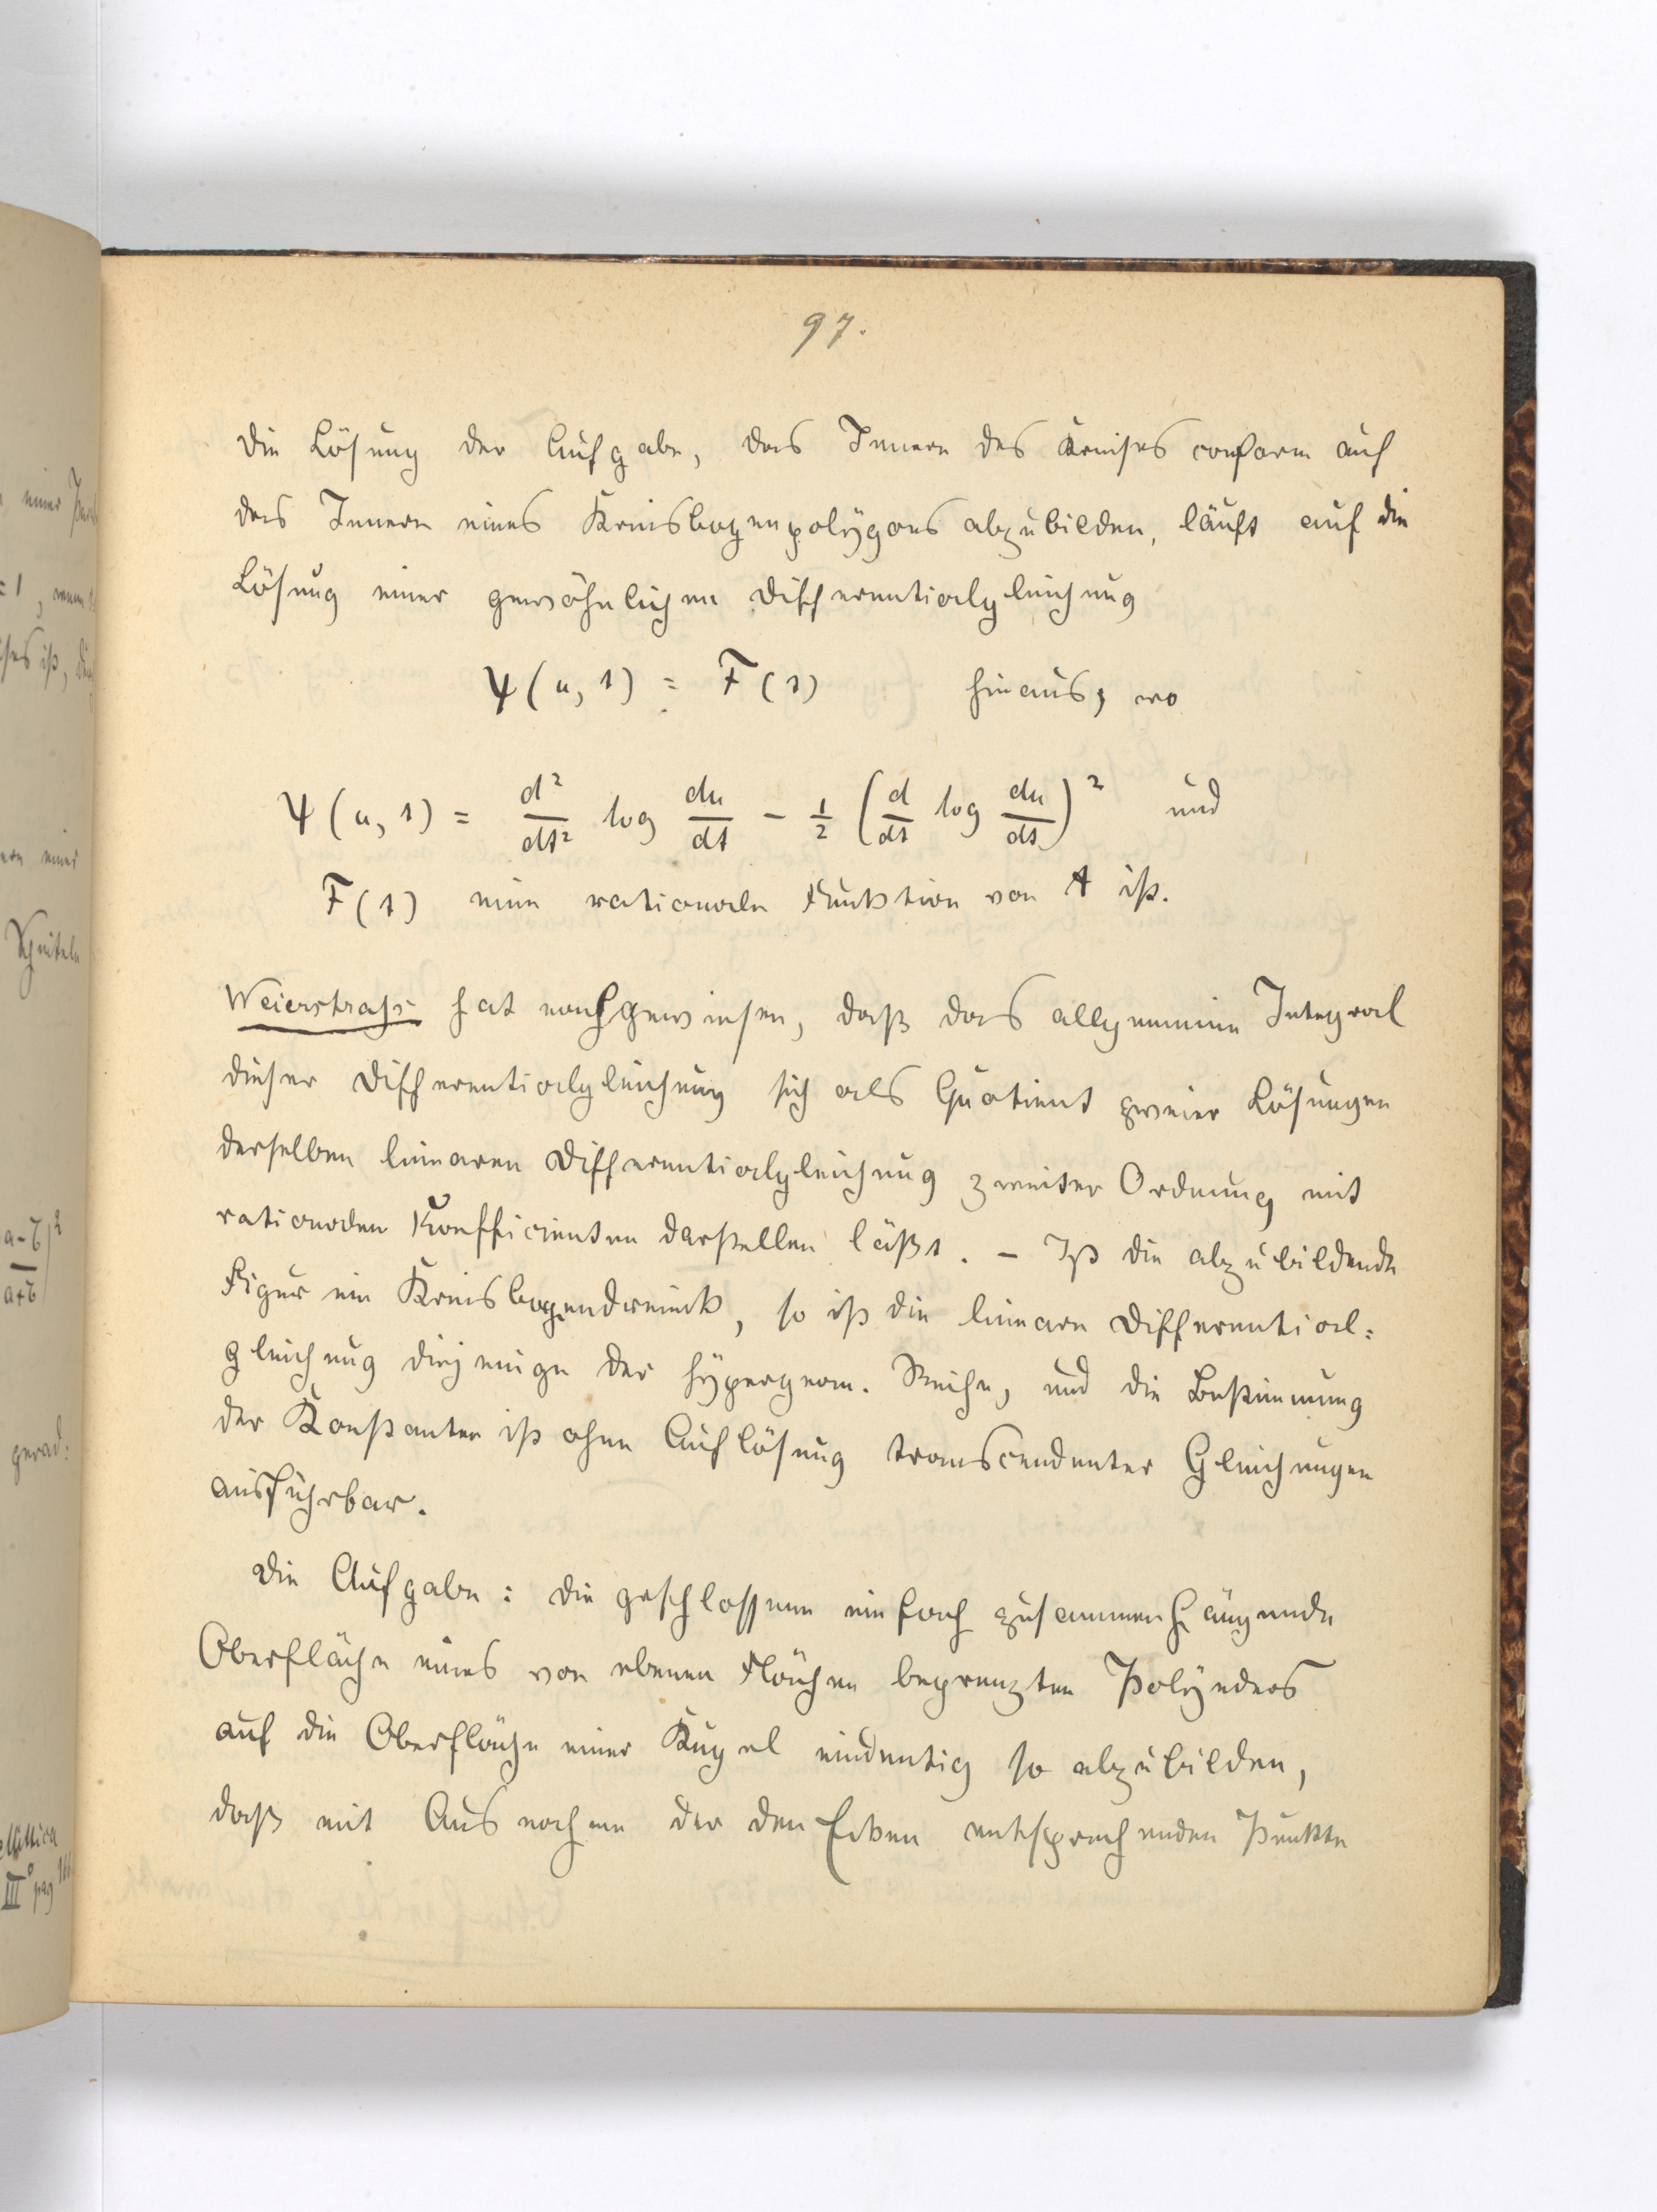 97.
Die Lösung der Aufgabe, das Innere des Kreises conform auf
das Innere eines Kreisbogenpolygons abzubilden, läuft auf die
Lösung einer gewöhnlichen Differentialgleichung
Ψ(u, t) = F(t) hinaus, wo
Ψ(u, t) = d²/dt² log du/dt − 1/2 (d/dt log du/dt)² und
F(t) eine rationale Funktion von t ist.
Weierstrass hat nachgewiesen, daß das allgemeine Integral
dieser Differentialgleichung sich als Quotient zweier Lösungen
derselben linearen Differentialgleichung zweiter Ordnung mit
rationalen Koefficienten darstellen läßt. – Ist die abzubildende
Figur ein Kreisbogendreieck, so ist die lineare Differential:
gleichung diejenige der hypergeom. Reihe, und die Bestimmung
der Konstanten ist ohne Auflösung transcendenter Gleichungen
ausführbar.
Die Aufgabe: die geschlossene einfach zusammenhängende
Oberfläche eines von ebenen Flächen begrenzten Polyeders
auf die Oberfläche einer Kugel eindeutig so abzubilden,
daß mit Ausnahme der den Ecken entsprechenden Punkte